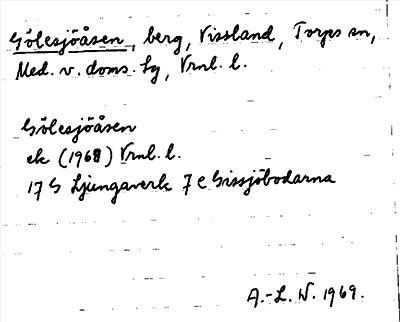 Gölesjöåsen, berg, Vissland, Torps sn,
Med. v. doms. Lg, Vrnl. l.
Gölesjöåsen
ek (1968) Vrnl. l.
17 G Ljungaverk 7 e Gissjöbodarna
A.-L. W. 1969.